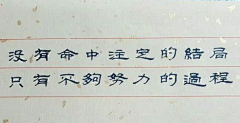 没有命中注定的結局
只有不夠努力的過程